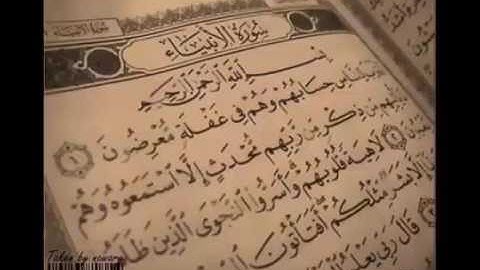 سُورَةُ الْأَنبِيَاءِ
بِسْمِ اللَّهِ الرَّحْمَٰنِ الرَّحِيمِ
حِسَابُهُمْ وَهُمْ فِي غَفْلَةٍ مُّعْرِضُونَ ١
مِّن ذِكْرٍ مِّن رَّبِّهِم مُّحْدَثٍ إِلَّا اسْتَمَعُوهُ وَهُمْ
٢ لَاهِيَةً قُلُوبُهُمْ وَأَسَرُّوا النَّجْوَى الَّذِينَ
بَشَرٌ مِّثْلُكُمْ أَفَتَأْتُونَ
قَالَ رَبِّي يَعْلَمُ
Taken by